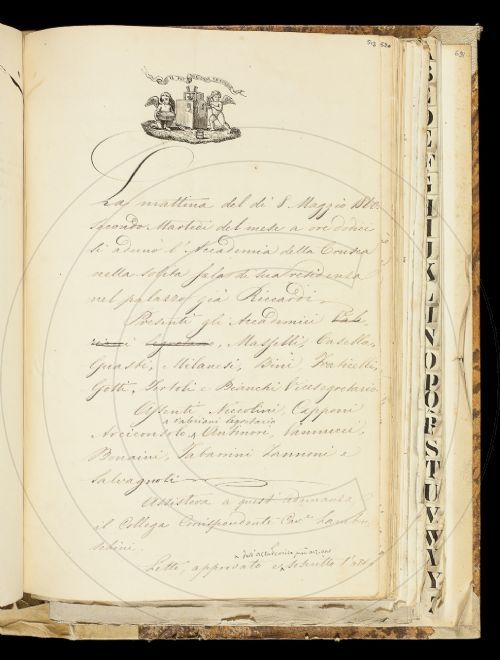 513 580
La mattina del dì 8 Maggio 1860,
secondo Martedì del mese a ore dodici
si adunò l'Accademia della Crusca
nella solita sala di sua residenza
nel palazzo già Riccardi.
Presenti gli Accademici
Masselli, Casella,
Guasti, Milanesi, Bini, Fraticelli,
Gotti, Tortoli e Bianchi Vicesegretario
Assenti Niccolini, Capponi
e Valeriani Segretario
Arciconsolo, Antinori, Vannucci,
Bonaini, Tabarrini Vannoni e
Salvagnoli
Assisteva a adunanza
il Collega Corrispondente Cav.e Lambru
schini.
Letto, approvato e
691
A
B
C
D
E
F
G
H
I
J
K
L
M
N
O
P
Q
R
S
T
U
V
W
X
Y
Z